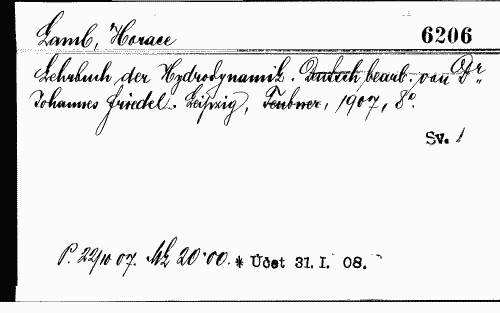 Lamb, Horace 6206
Lehrbuch der Hydrodynamik. Deutsch bearb. von Dr.
Johannes Friedel. Leipzig, Teubner, 1907, 8°.
Sv. 1
P. 22/10 07. Mk 20·00. * Účet 31. I. 08.